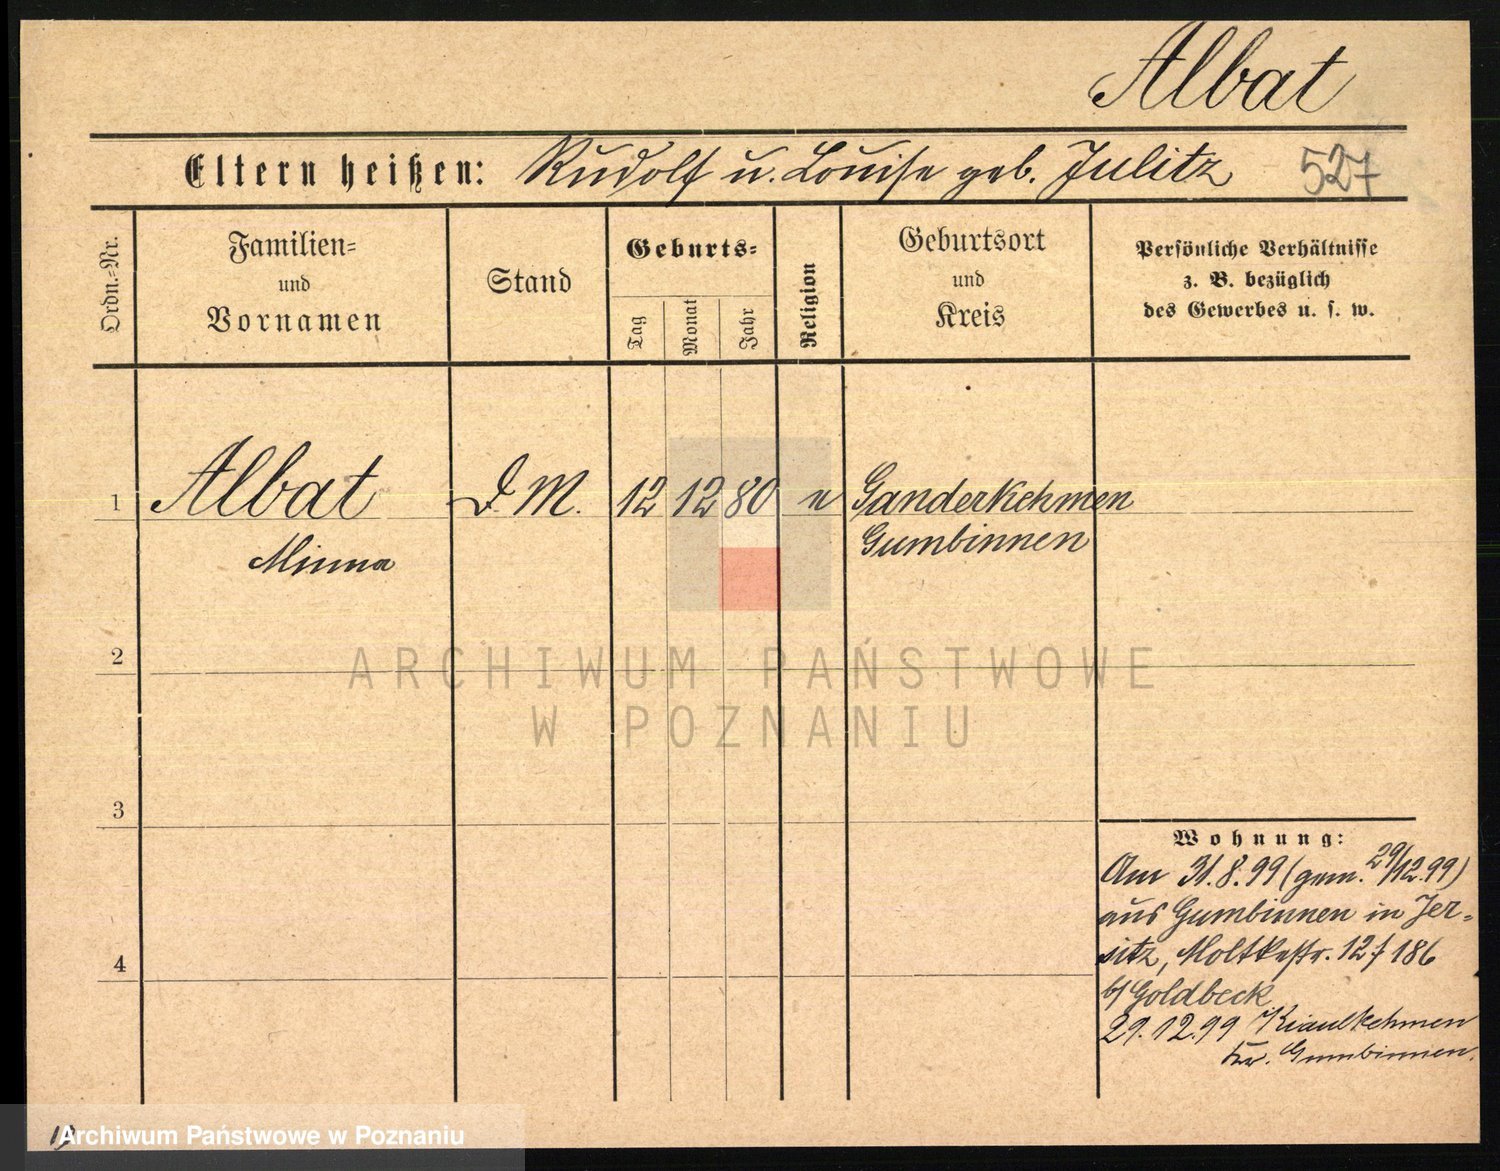 Albat
Eltern heißen: Rudolf u. Louise geb. Julitz 527
Ordn.=Nr.
Familien=
und
Vornamen
Stand
Geburts=
Tag
Monat
Jahr
Religion
Geburtsort
und
Kreis
Persönliche Verhältnisse
z. B. bezüglich
des Gewerbes u. s. w.
1 Albat D. M. 12 12 80 Ganderkehmen
Minna Gumbinnen
2
ARCHIWUM PAŃSTWOWE
W POZNANIU
3
Wohnung:
Am 31.8.99 (gem. 29/12.99)
aus Gumbinnen in Jer=
sitz, Moltkestr. 186
b/ Goldbeck
4
29.12.99 Kiaulkehmen
Kr. Gumbinnen.
Archiwum Państwowe w Poznaniu